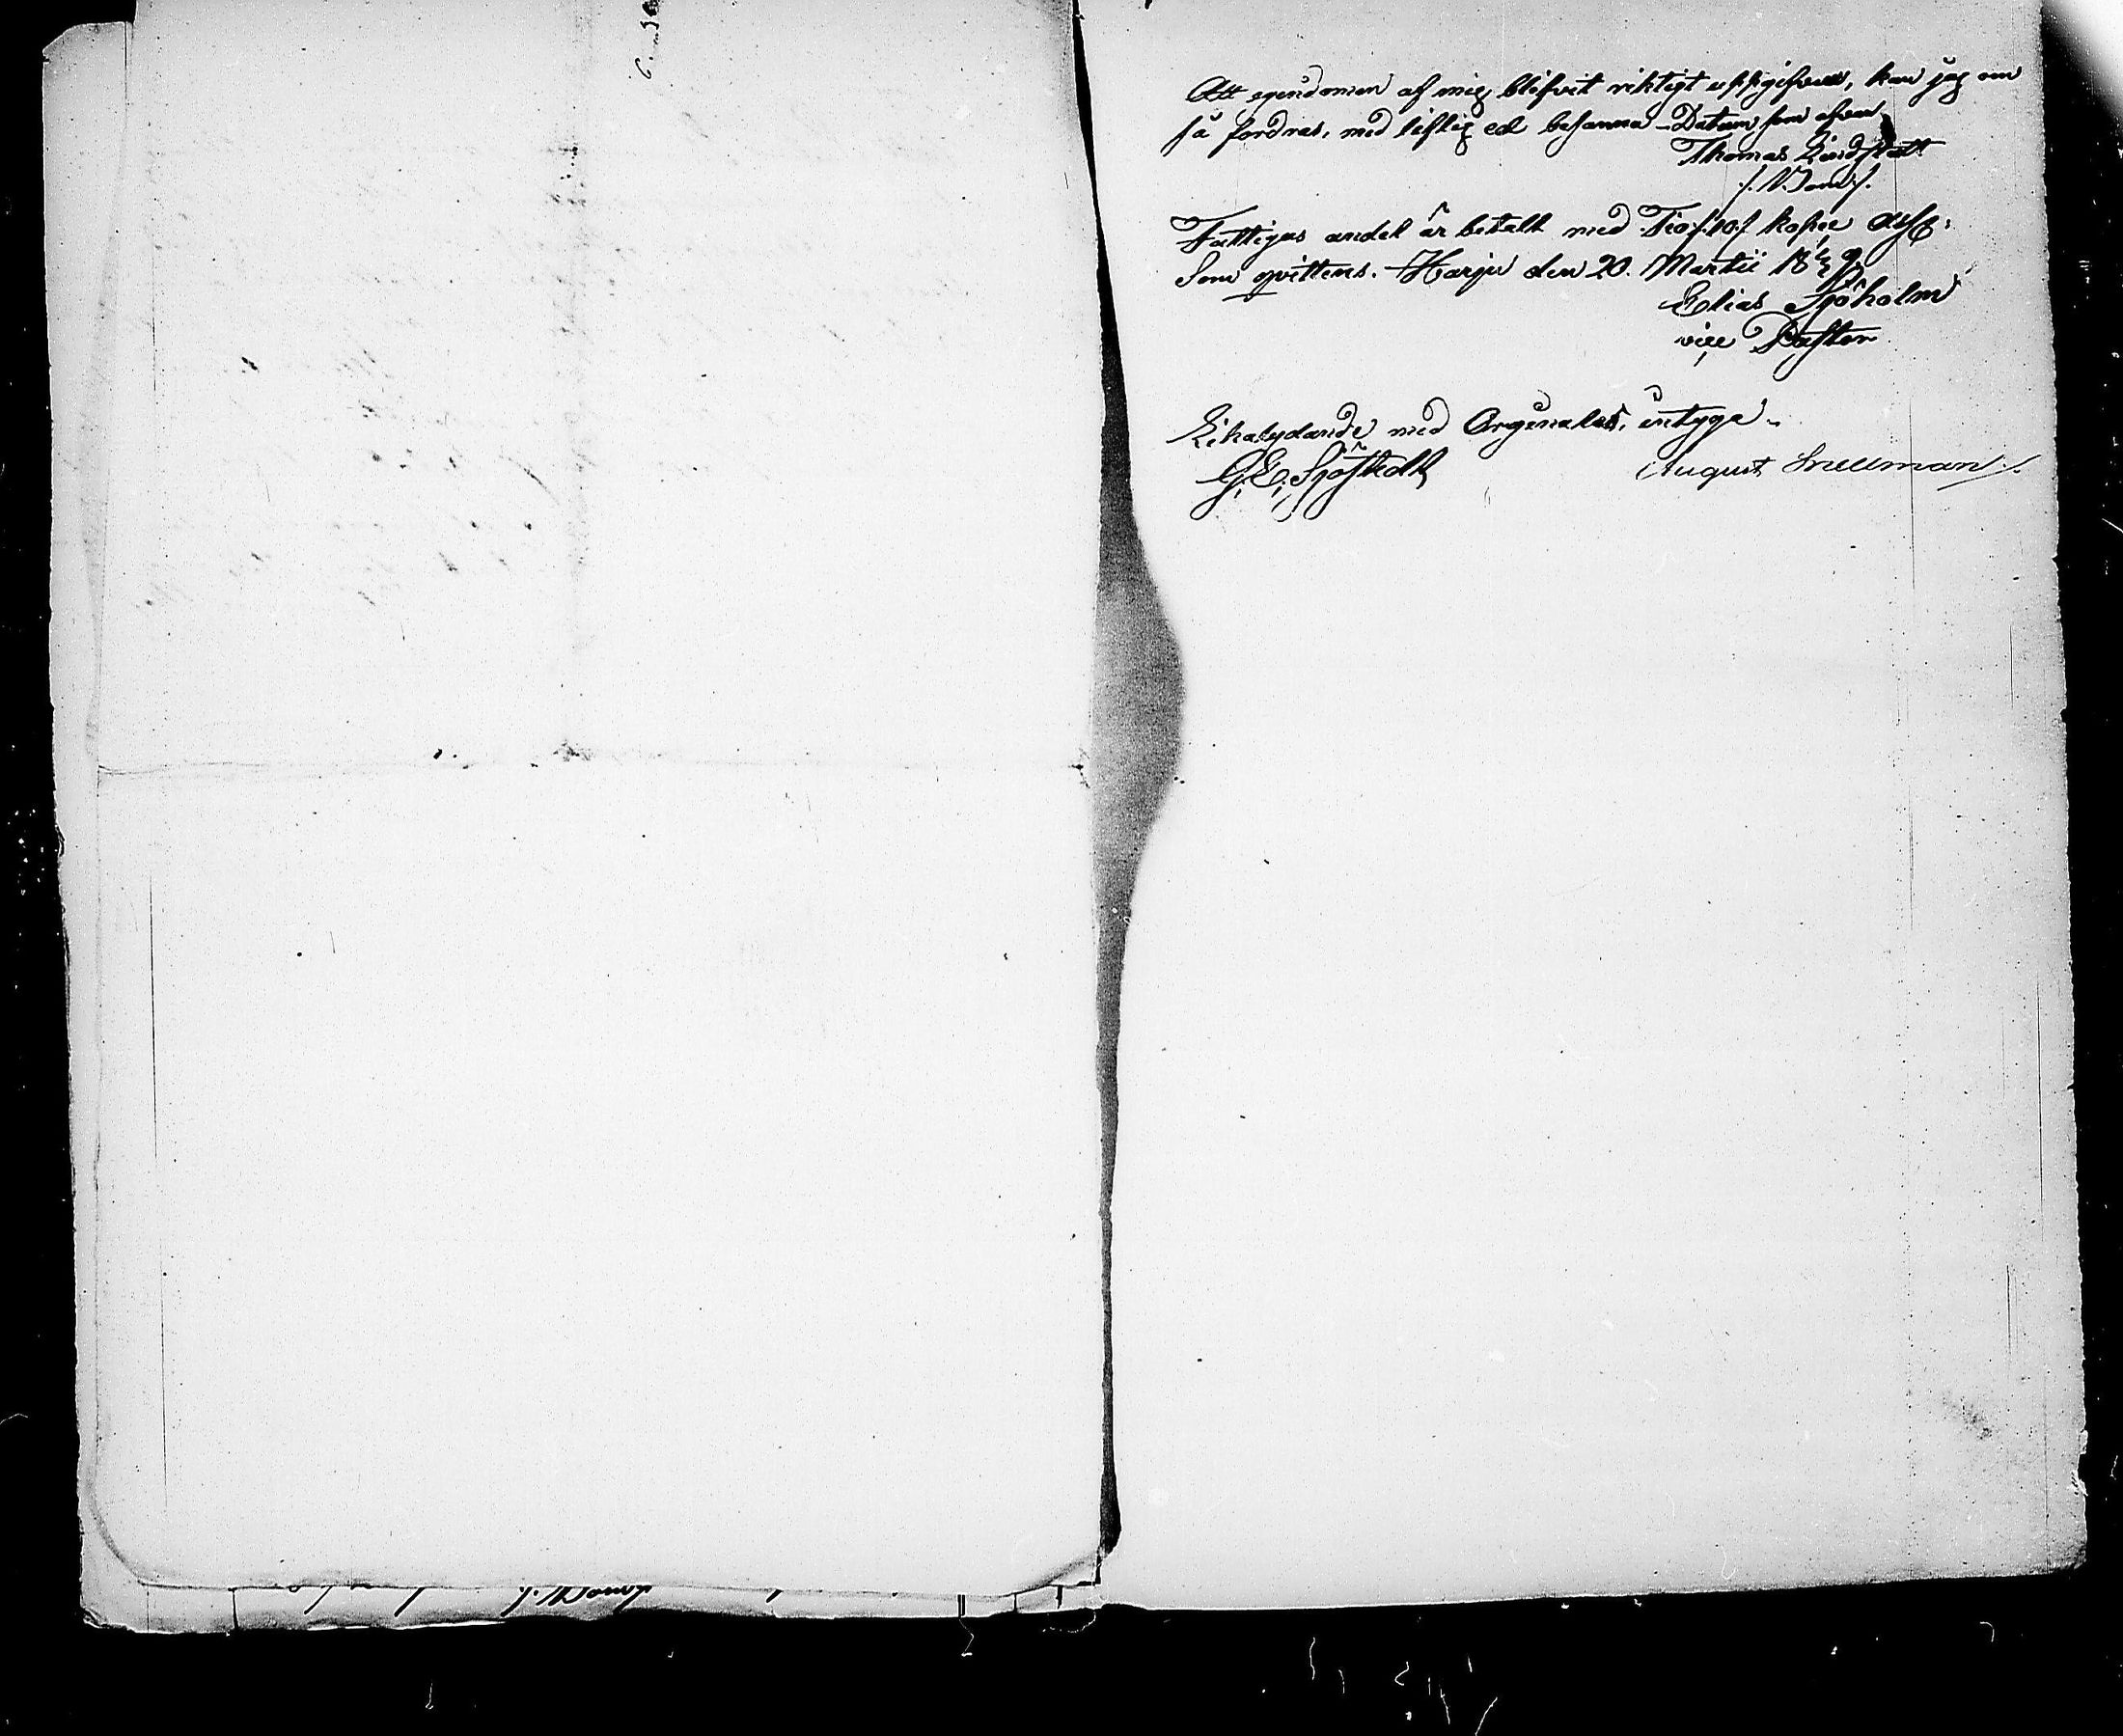 Att egendomen af mig blifvit riktigt uppgifven, kan jag om
så fordras, med liflig ed besanna – Datum som ofvan
Thomas Lindstedt
/: N. Nem:/.
Fattigas andel är betalt med Tio /:10:/ kopee Assg:
Som qvitteras. Harju den 20. Martii 18
Elias Sjöholm
vice Pastor
Likalydande med Orginalet, intyga
G. E. Sjöstedt August Snellman